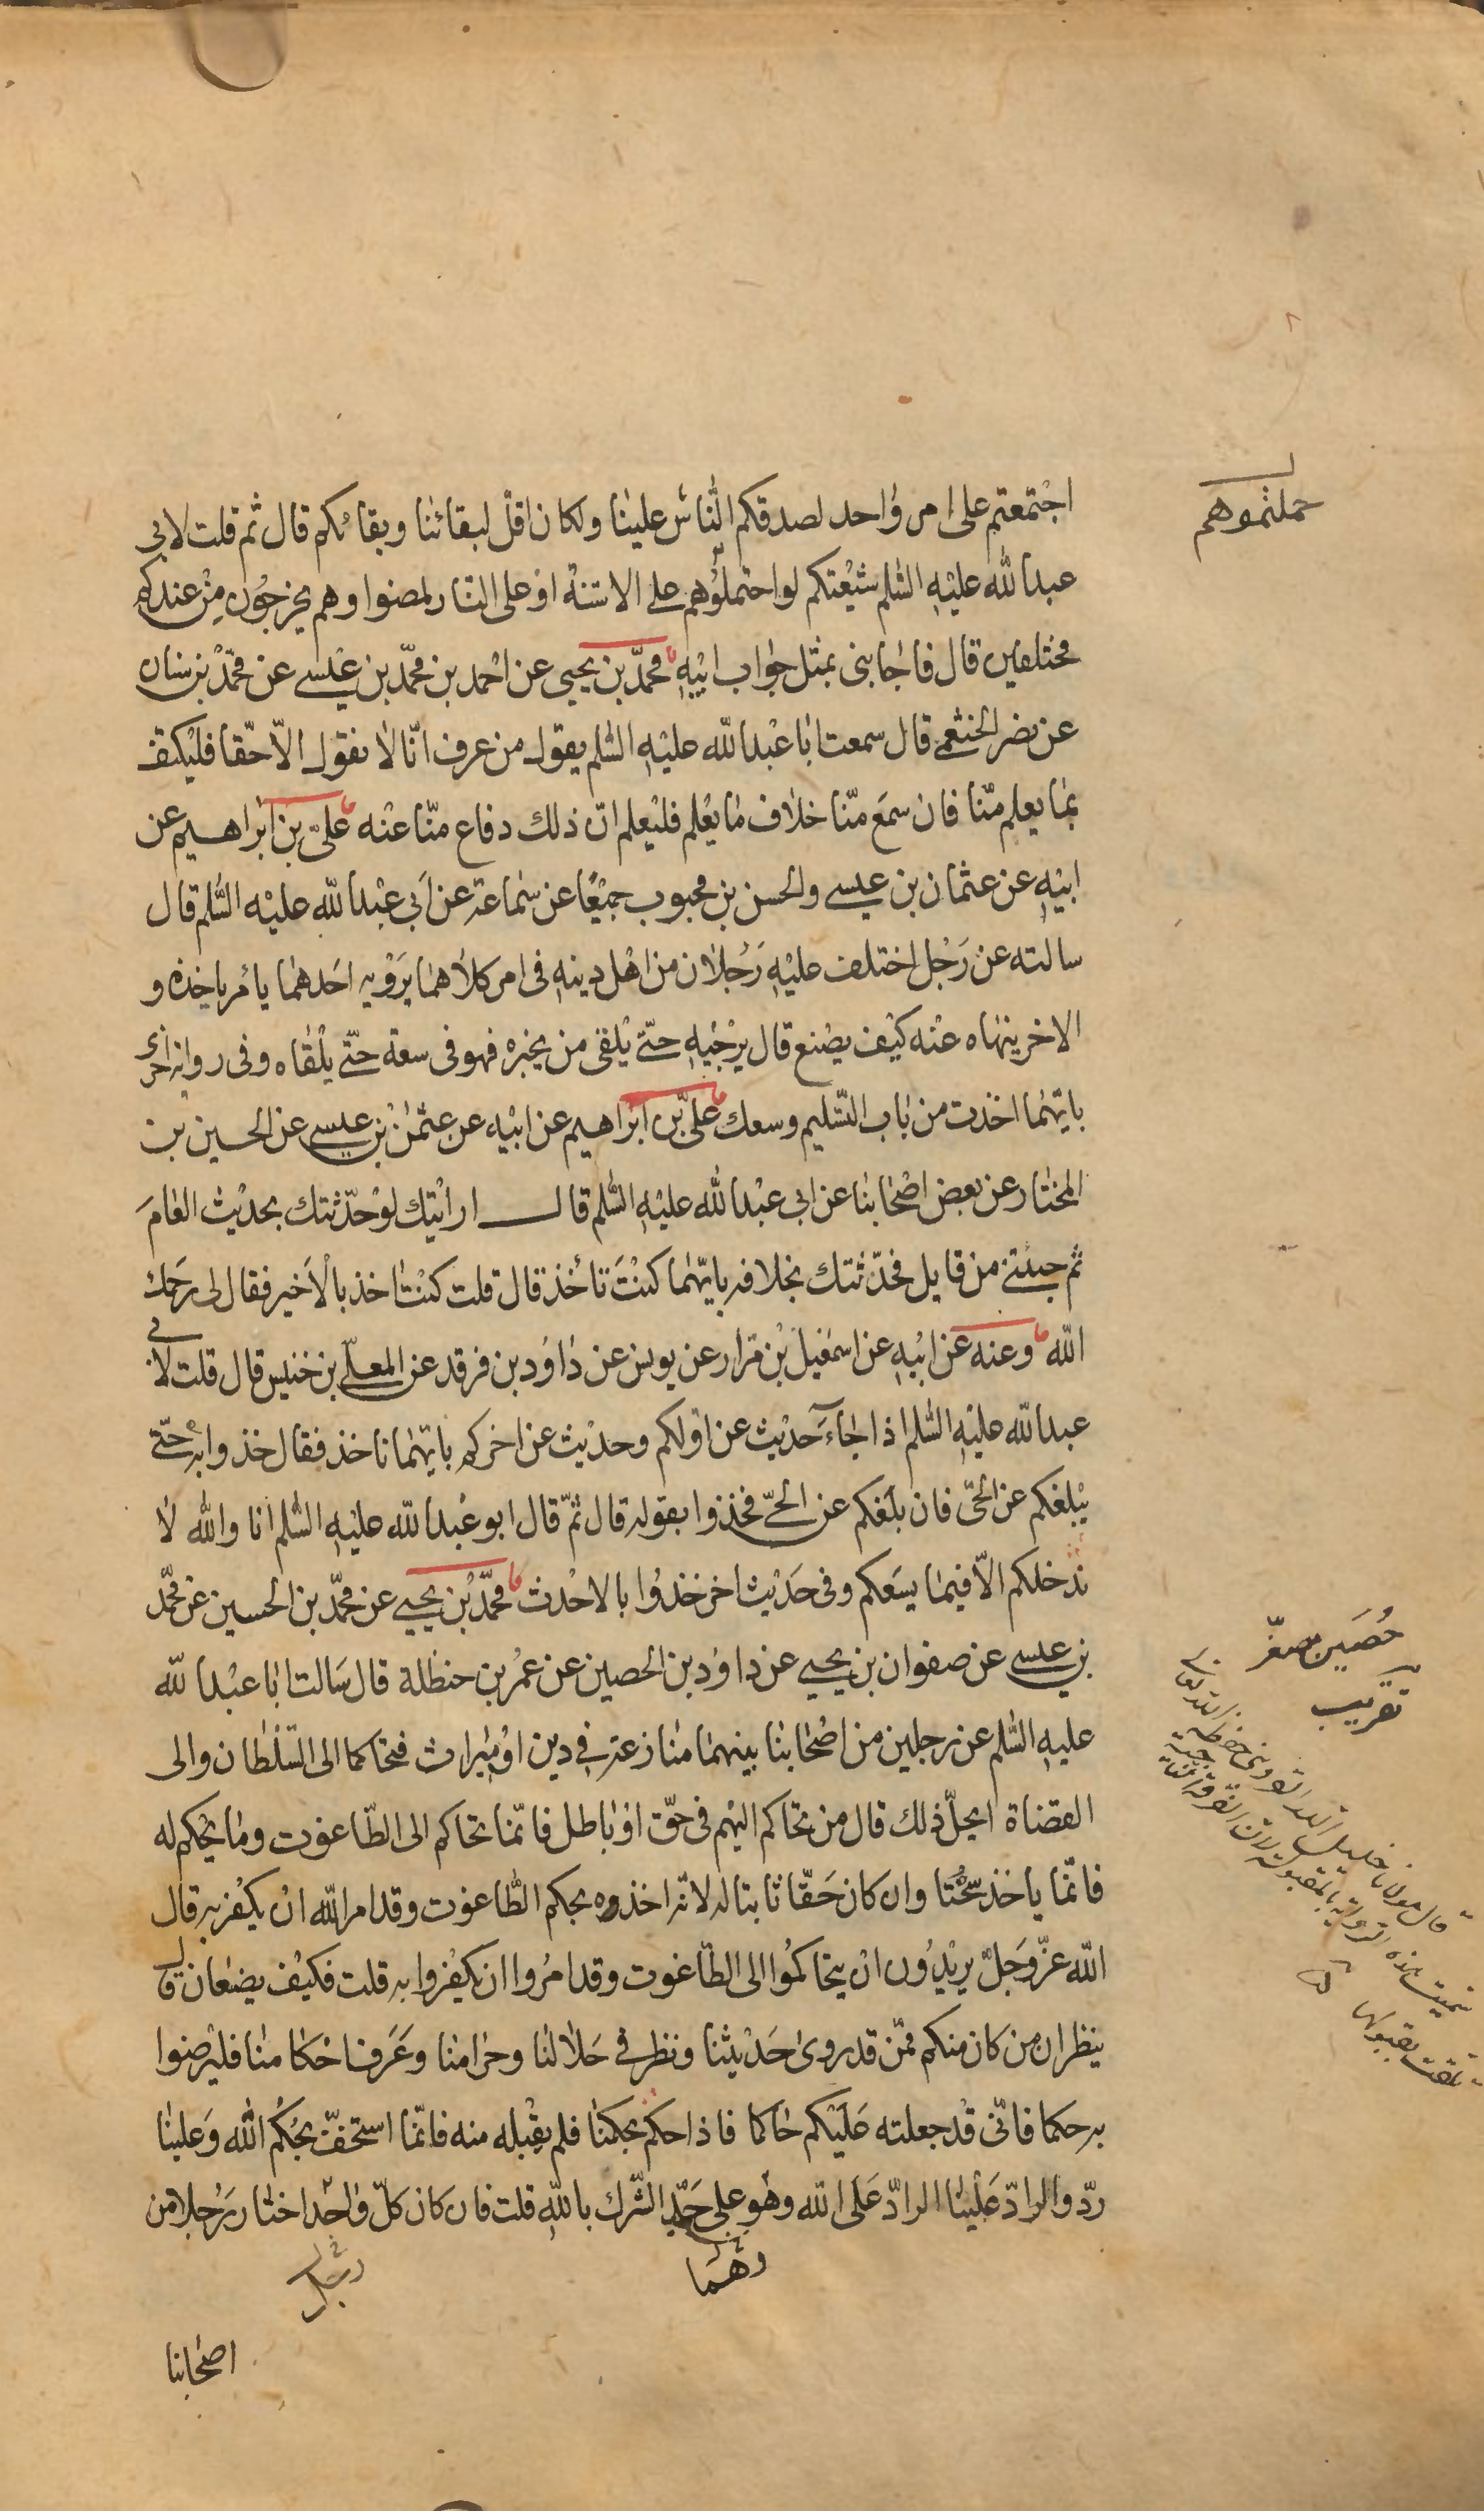 اجتمعتم على امر واحد لصدقكم الناس علينا ولكان اقل لبقائنا وبقائكم قال ثم قلت لابى
عبد الله عليه السلم شيعتكم لو احتملوهم على الاسنة او على النار لمضوا وهم يخرجون من عندكم
مختلفين قال فاجابنى بمثل جواب ابيه محمد بن يحيى عن احمد بن محمد بن عيسى عن محمد بن سنان
عن نصر الخثعمى قال سمعت ابا عبد الله عليه السلم يقول من عرف انا لا نقول الا حقا فليكتف
بما يعلم منا فان سمع منا خلاف ما يعلم فليعلم ان ذلك دفاع منا عنه على بن ابراهيم عن
ابيه عن عثمان بن عيسى والحسن بن محبوب جميعا عن سماعة عن ابى عبد الله عليه السلم قال
سالته عن رجل اختلف عليه رجلان من اهل دينه فى امر كلاهما يرويه احدهما يامر باخذه و
الاخر ينهاه عنه كيف يصنع قال يرجيه حتى يلقى من يخبره فهو فى سعة حتى يلقاه وفى رواية اخرى
بايهما اخذت من باب التسليم وسعك على بن ابراهيم عن ابيه عن عثمن بن عيسى عن الحسين بن
المختار عن بعض اصحابنا عن ابى عبد الله عليه السلم قال ارايتك لو حدثتك بحديث العام
ثم جئتنى من قابل فحدثتك بخلافه بايهما كنت تأخذ قال قلت كنت اخذ بالاخير فقال لى رحمك
الله وعنه عن ابيه عن اسمعيل بن مرار عن يونس عن داود بن فرقد عن المعلى بن خنيس قال قلت لابى
عبد الله عليه السلم اذا جاء حديث عن اولكم وحديث عن اخركم بايهما ناخذ فقال خذوا به حتى
يبلغكم عن الحى فان بلغكم عن الحى فخذوا بقوله قال ثم قال ابو عبد الله عليه السلم انا والله لا
ندخلكم الا فيما يسعكم وفى حديث اخر خذوا بالاحدث محمد بن يحيى عن محمد بن الحسين عن محمد
بن عيسى عن صفوان بن يحيى عن داود بن الحصين عن عمر بن حنظلة قال سالت ابا عبد الله
عليه السلم عن رجلين من اصحابنا بينهما منازعة فى دين او ميراث فتحاكما الى السلطان والى
القضاة ايحل ذلك قال من تحاكم اليهم فى حق او باطل فانما تحاكم الى الطاغوت وما يحكم له
فانما ياخذ سحتا وان كان حقا ثابتا له لانه اخذوه بحكم الطاغوت وقد امر الله ان يكفر به قال
الله عز وجل يريدون ان يتحاكموا الى الطاغوت وقد امروا ان يكفروا به قلت فكيف يصنعان قال
ينظران من كان منكم ممن قد روى حديثنا ونظر فى حلالنا وحرامنا وعرف احكامنا فليرضوا
به حكما فانى قد جعلته عليكم حاكما فاذا حكم بحكمنا فلم يقبله منه فانما استخف بحكم الله وعلينا
رد والراد علينا الراد على الله وهو على حد الشرك بالله قلت فان كان كل واحد اختار رجلا من
وهما
اصحابنا
حملتموهم
حصين مصغر
تقريب
قال مولانا خليل الله القزوينى حفظه الله تعالى